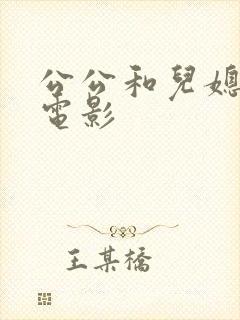 公公和兒媳
電影
王某橋